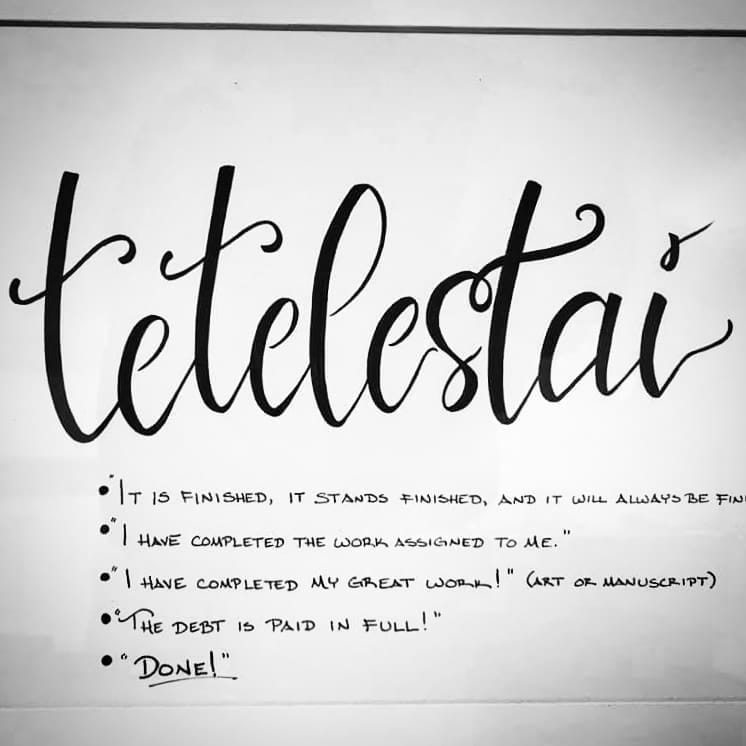 tetelestai
• "It is finished, it stands finished, and it will always be
• "I have completed the work assigned to me."
• "I have completed my great work!" (art or manuscript)
• "The debt is paid in full!"
• "Done!"